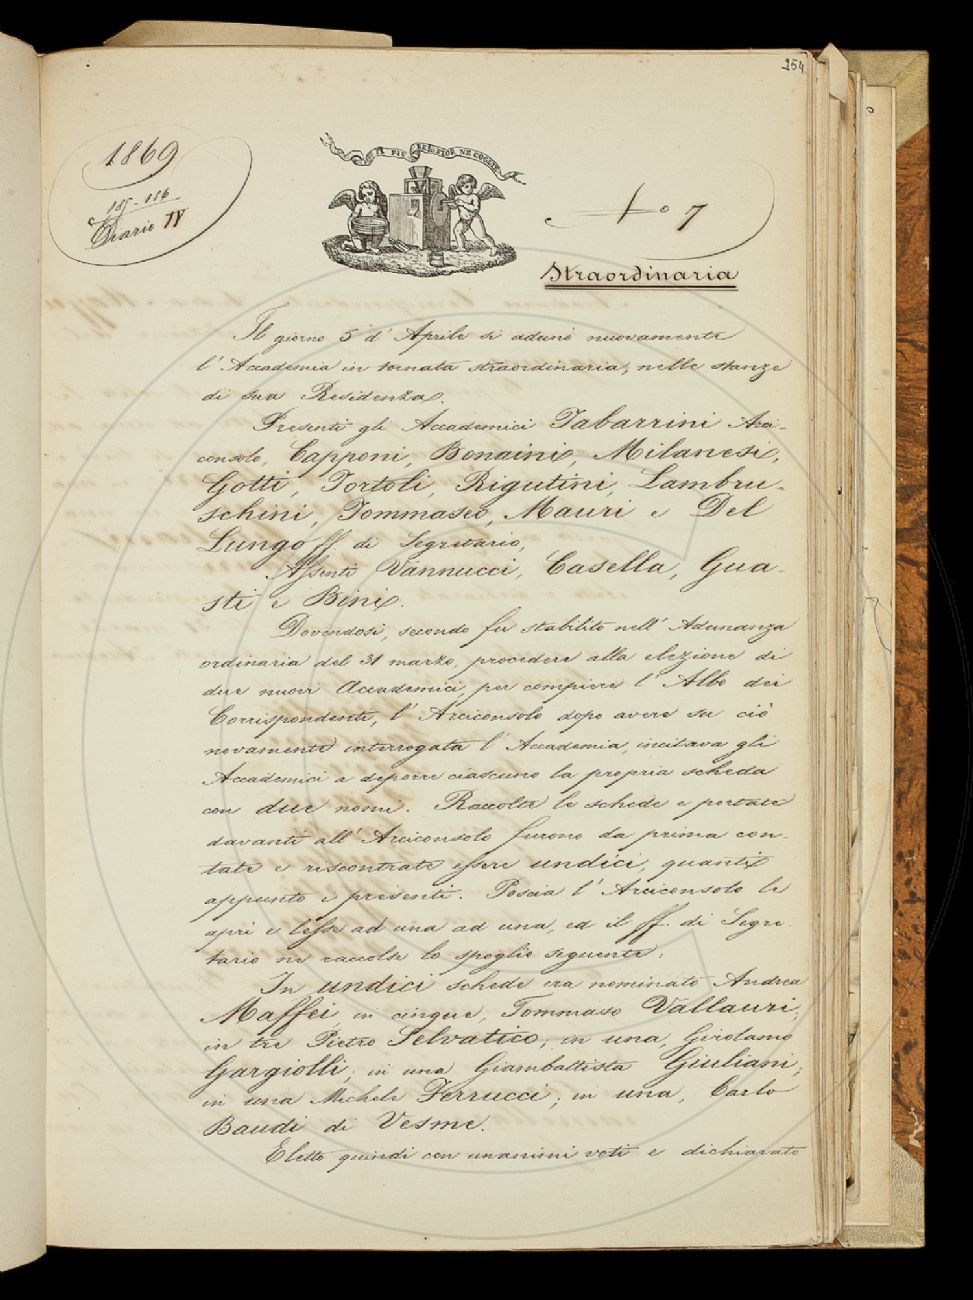 254
1869
c. 185-186
Diario IV
IL PIÙ BEL FIOR NE COGLIE
No 7
Straordinaria
Il giorno 5 d'Aprile si adunò nuovamente
l'Accademia in tornata straordinaria, nelle stanze
di sua Residenza.
Presenti gli Accademici Tabarrini Arci-
consolo, Capponi, Bonaini, Milanesi,
Gotti, Tortoli, Rigutini, Lambru-
schini, Tommaseo, Mauri e Del
Lungo ff. di Segretario,
Assenti Vannucci, Casella, Gua-
sti e Bini.
Dovendosi, secondo fu stabilito nell'Adunanza
ordinaria del 31 marzo, procedere alla elezione di
due nuovi Accademici, per compiere l'Albo dei
Corrispondenti, l'Arciconsolo dopo avere su ciò
novamente interrogata l'Accademia, incitava gli
Accademici a deporre ciascuno la propria scheda
con due nomi. Raccolte le schede e portate
davanti all'Arciconsolo furono da prima con-
tate e riscontrate essere undici, quanti
appunto i presenti. Poscia l'Arciconsolo le
aprì e lesse ad una ad una, ed il ff. di Segre-
tario ne raccolse lo spoglio seguente:
In undici schede era nominato Andrea
Maffei, in cinque, Tommaso Vallauri,
in tre Pietro Selvatico; in una, Girolamo
Gargiolli; in una Giambattista Giuliani;
in una Michele Ferrucci; in una, Carlo
Baudi di Vesme.
Eletto quindi con unanimi voti e dichiarato